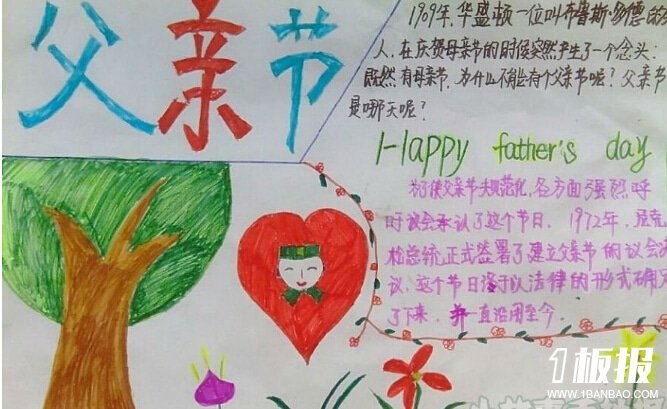 父亲节
1909年，华盛顿一位叫布鲁斯·多德的
人，在庆贺母亲节的时候突然产生了一个念头：
既然有母亲节，为什么不能有个父亲节呢？父亲节
是哪天呢？
Happy father's day
为了使父亲节规范化，各方面强烈呼
吁议会承认了这个节日。1972年，尼克
松总统正式签署了建立父亲节的议会
议，这个节日终于以法律的形式确
了下来，并一直沿用至今。
1板报
WWW.1BANBAO.COM